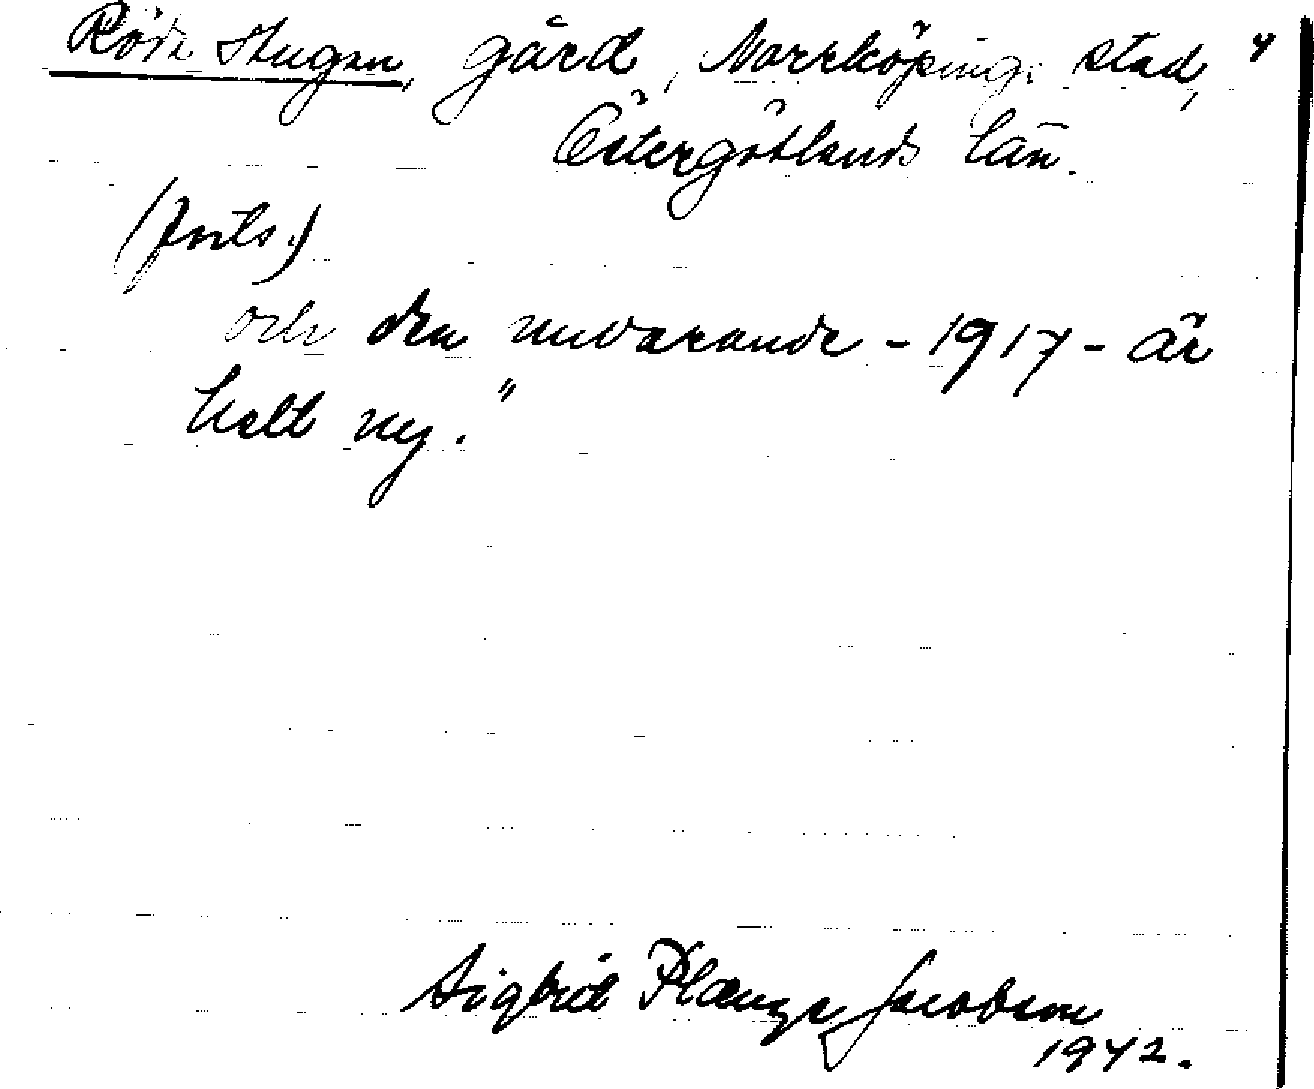 Röda Stugan, gård, Norrköpings stad, 4
Östergötlands län.
(forts.)
och den nuvarande - 1917 - är
helt ny."
Sigrid Plænge Jacobson
1942.